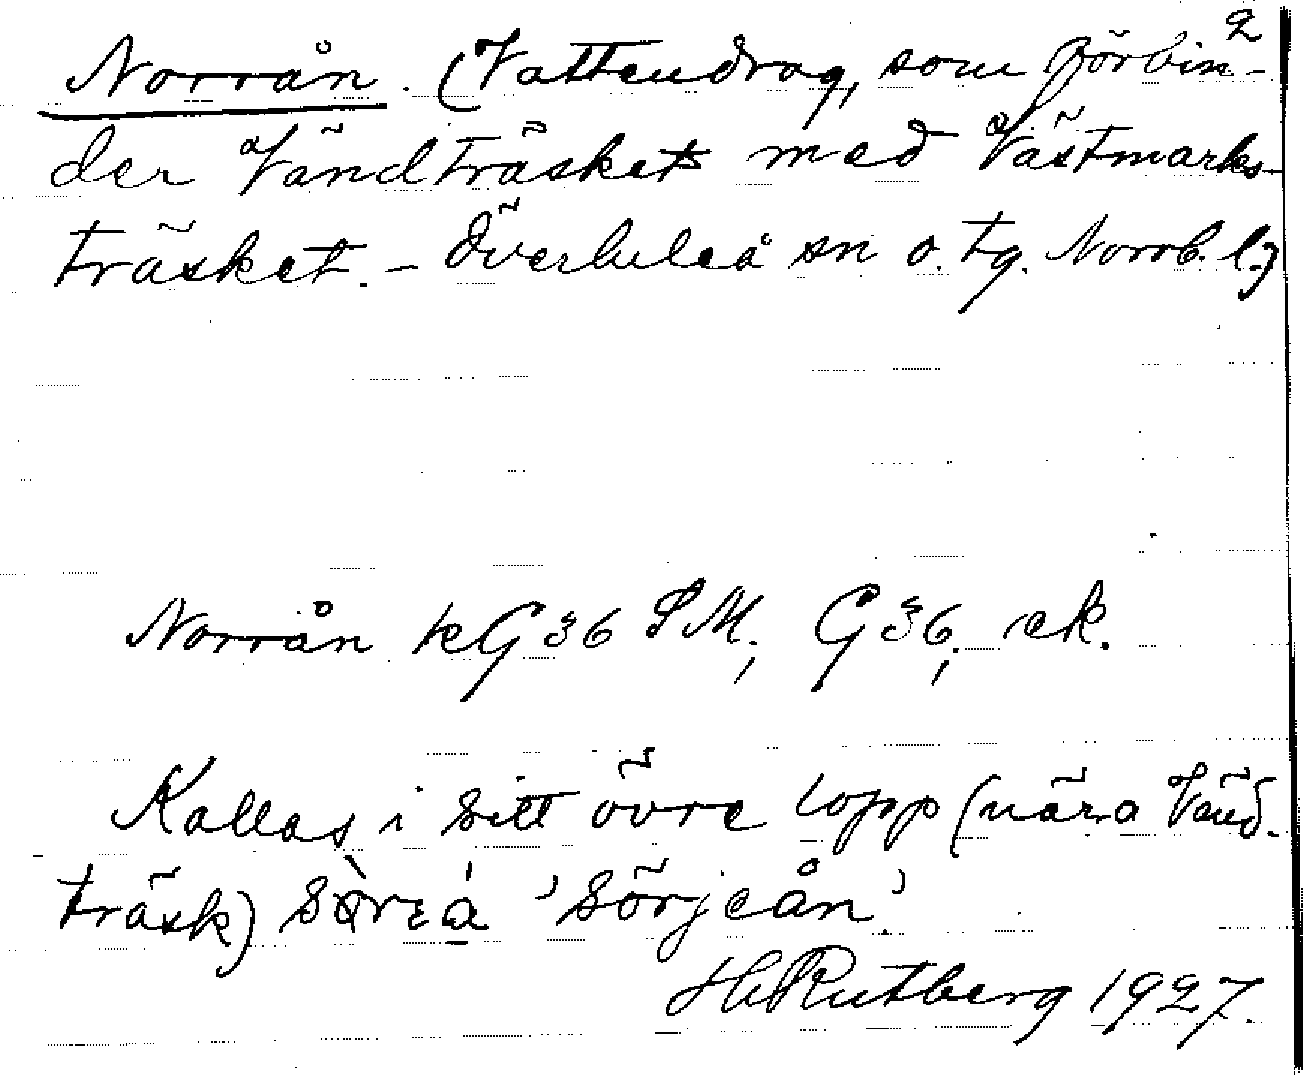 2
Norrån. (Vattendrag, som förbin-
der Vändträsket med Västmarks-
träsket. - Överluleå sn o. tg. Norrb. l.)
Norrån kG36 SM; G36, ek.
Kallas i sitt övre lopp (nära Vänd-
träsk) 'Sörjeån'.
H. Rutberg 1927.